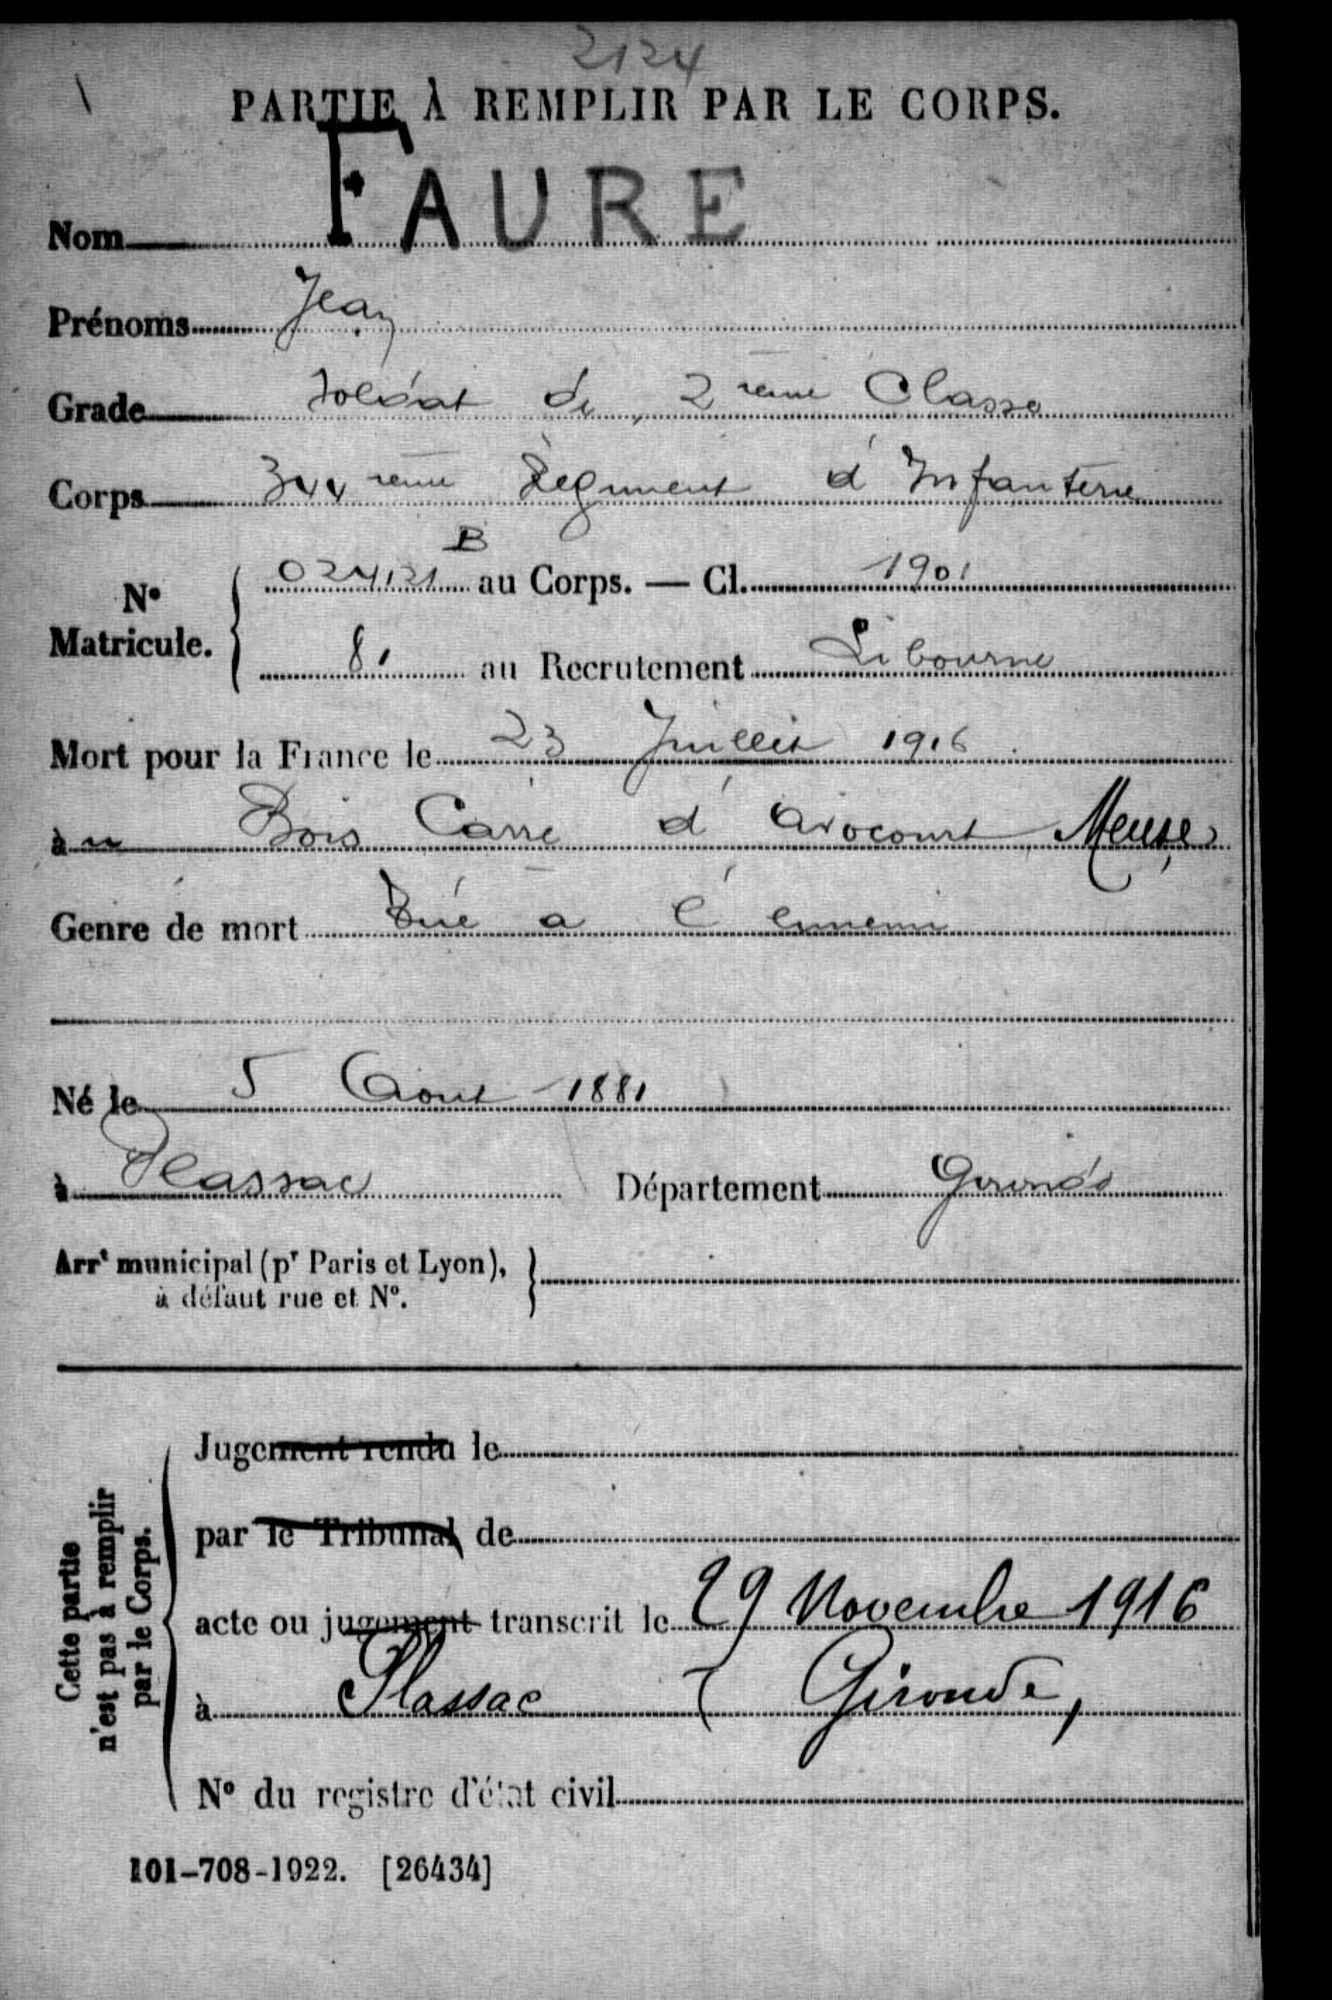 2124
PARTIE À REMPLIR PAR LE CORPS.
Nom FAURE
Prénoms Jean
Grade Soldat de 2ème Classe
Corps 344ème Régiment d'Infanterie
B
N° Matricule. 024131 au Corps. — Cl. 1901
81 au Recrutement Libourne
Mort pour la France le 23 Juillet 1916
à u Bois Carré d'Avocourt Meuse
Genre de mort Tué à l'ennemi
Né le 5 Aout 1881
à Plassac Département Gironde
Arrt municipal (pr Paris et Lyon),
à défaut rue et N°.
Cette partie
n'est pas à remplir
par le Corps.
Jugement rendu le
par le Tribunal de
acte ou jugement transcrit le 29 Novembre 1916
à Plassac (Gironde,
N° du registre d'état civil
101-708-1922. [26434]